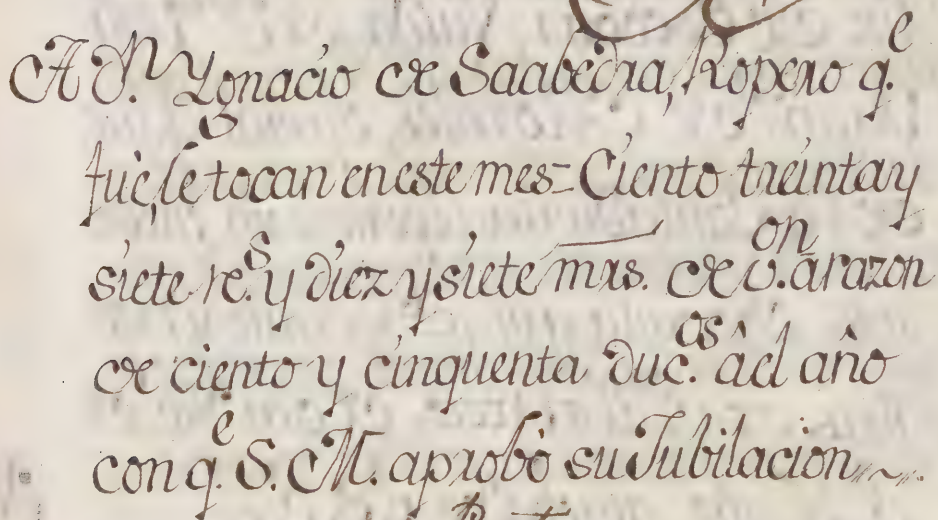 A D.ⁿ Ygnacio de Saabedra, Ropero q.ᵉ
fue, le tocan en este mes = Ciento treinta y
siete r.ˢ y diez y siete mrs. de v.ᵒⁿ â razon
de ciento y cinquenta duc.ᵒˢ âl año
con q.ᵉ S. M. aprobô su Jubilacion